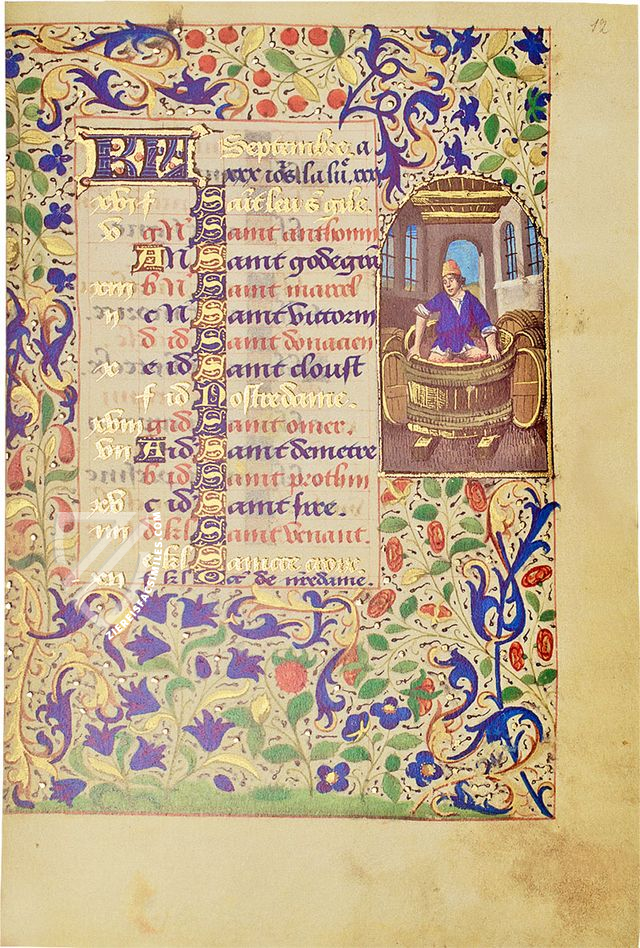 12
KL Septembre. a
xxx iors la lu. xxx
xvi f Saīt leu s gile.
v g N Saint anthonin
A N Saint godegrā
xiii b N Saint marcel
ii c N Saint victorin
d id Saint donacien
x e id Saint cloust
f id Nostredame.
xviii g id Saint omer.
vii A id Saint demetre
b id Saint prothin
xv c id Saint sire.
iiii d kl Saint venant.
e kl Saincte croix.
xii f kl Oct de nredame.
ZIEREISFACSIMILES.COM